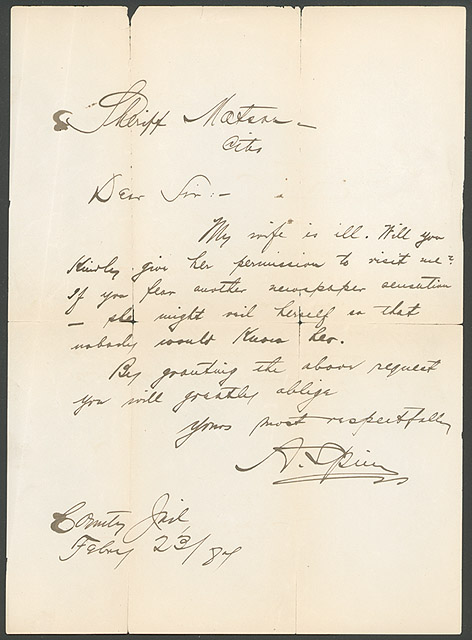 Sheriff Matson –
City
Dear Sir:–
My wife is ill. Will you
Kindly give her permission to visit me?
If you fear another newspaper sensation
– she might veil herself so that
nobody would Know her.
By granting the above request
you will greatly oblige
yours most respectfully
A. Spies
County Jail,
Febry 23/87